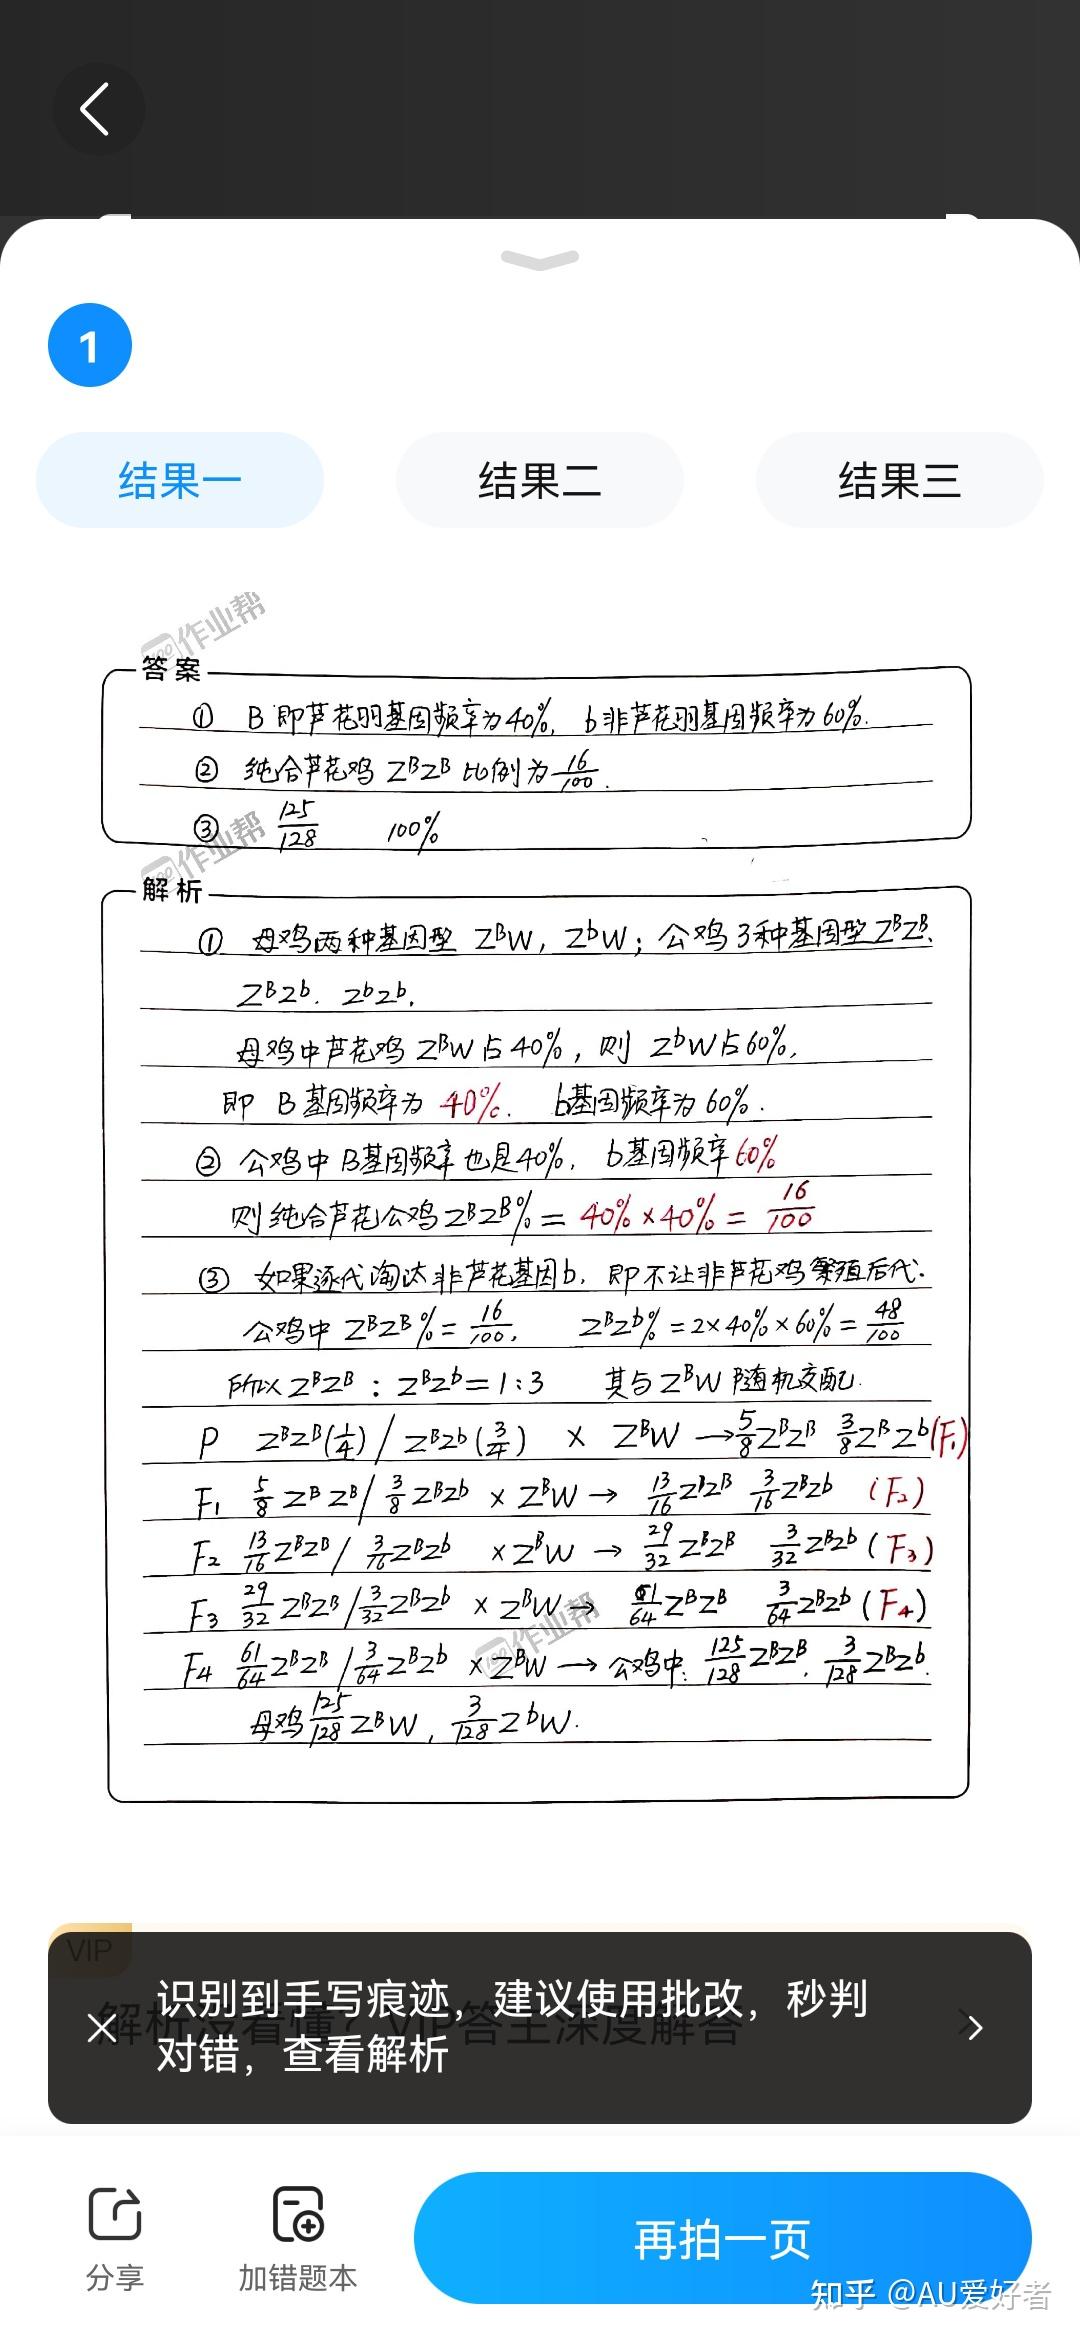 1
结果一 结果二 结果三
作业帮
答案
① B即芦花羽基因频率为40%, b非芦花羽基因频率为60%.
② 纯合芦花鸡 ZᴮZᴮ 比例为 16/100.
③ 125/128 100%
作业帮
解析
① 母鸡两种基因型 ZᴮW, ZᵇW; 公鸡3种基因型 ZᴮZᴮ、
ZᴮZᵇ. ZᵇZᵇ.
母鸡中芦花鸡 ZᴮW占40%, 则 ZᵇW占60%,
即 B基因频率为 40%. b基因频率为60%.
② 公鸡中B基因频率也是40%, b基因频率60%
则纯合芦花公鸡ZᴮZᴮ% = 40%×40% = 16/100
③ 如果逐代淘汰非芦花基因b, 即不让非芦花鸡繁殖后代.
公鸡中 ZᴮZᴮ% = 16/100, ZᴮZᵇ% = 2×40%×60% = 48/100
所以 ZᴮZᴮ : ZᴮZᵇ = 1 : 3 其与 ZᴮW 随机交配.
P ZᴮZᴮ(1/4) / ZᴮZᵇ(3/4) × ZᴮW → 5/8 ZᴮZᴮ 3/8 ZᴮZᵇ (F₁)
F₁ 5/8 ZᴮZᴮ / 3/8 ZᴮZᵇ × ZᴮW → 13/16 ZᴮZᴮ 3/16 ZᴮZᵇ (F₂)
F₂ 13/16 ZᴮZᴮ / 3/16 ZᴮZᵇ × ZᴮW → 29/32 ZᴮZᴮ 3/32 ZᴮZᵇ (F₃)
F₃ 29/32 ZᴮZᴮ / 3/32 ZᴮZᵇ × ZᴮW → 61/64 ZᴮZᴮ 3/64 ZᴮZᵇ (F₄)
作业帮
F₄ 61/64 ZᴮZᴮ / 3/64 ZᴮZᵇ × ZᴮW → 公鸡中: 125/128 ZᴮZᴮ, 3/128 ZᴮZᵇ.
母鸡 125/128 ZᴮW, 3/128 ZᵇW.
VIP
解析没看懂? VIP答主深度解答
识别到手写痕迹，建议使用批改，秒判
对错，查看解析
分享 加错题本 再拍一页
知乎 @AU爱好者